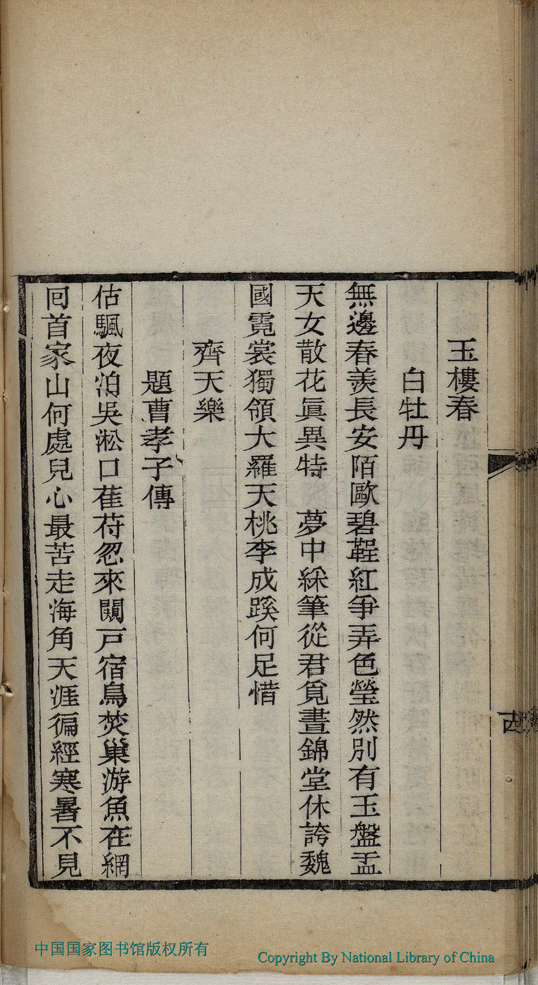 玉樓春
白牡丹
無邊春羨長安陌歐碧鞓紅爭弄色瑩然別有玉盤盂
天女散花眞異特　夢中綵筆從君覓晝錦堂休誇魏
國霓裳獨領大羅天桃李成蹊何足惜
齊天樂
題曹孝子傳
估颿夜泊吳淞口萑苻忽來闞戸宿鳥焚巢游魚在網
回首家山何處兒心最苦走海角天涯徧經寒暑不見
中国国家图书馆版权所有
Copyright By National Library of China